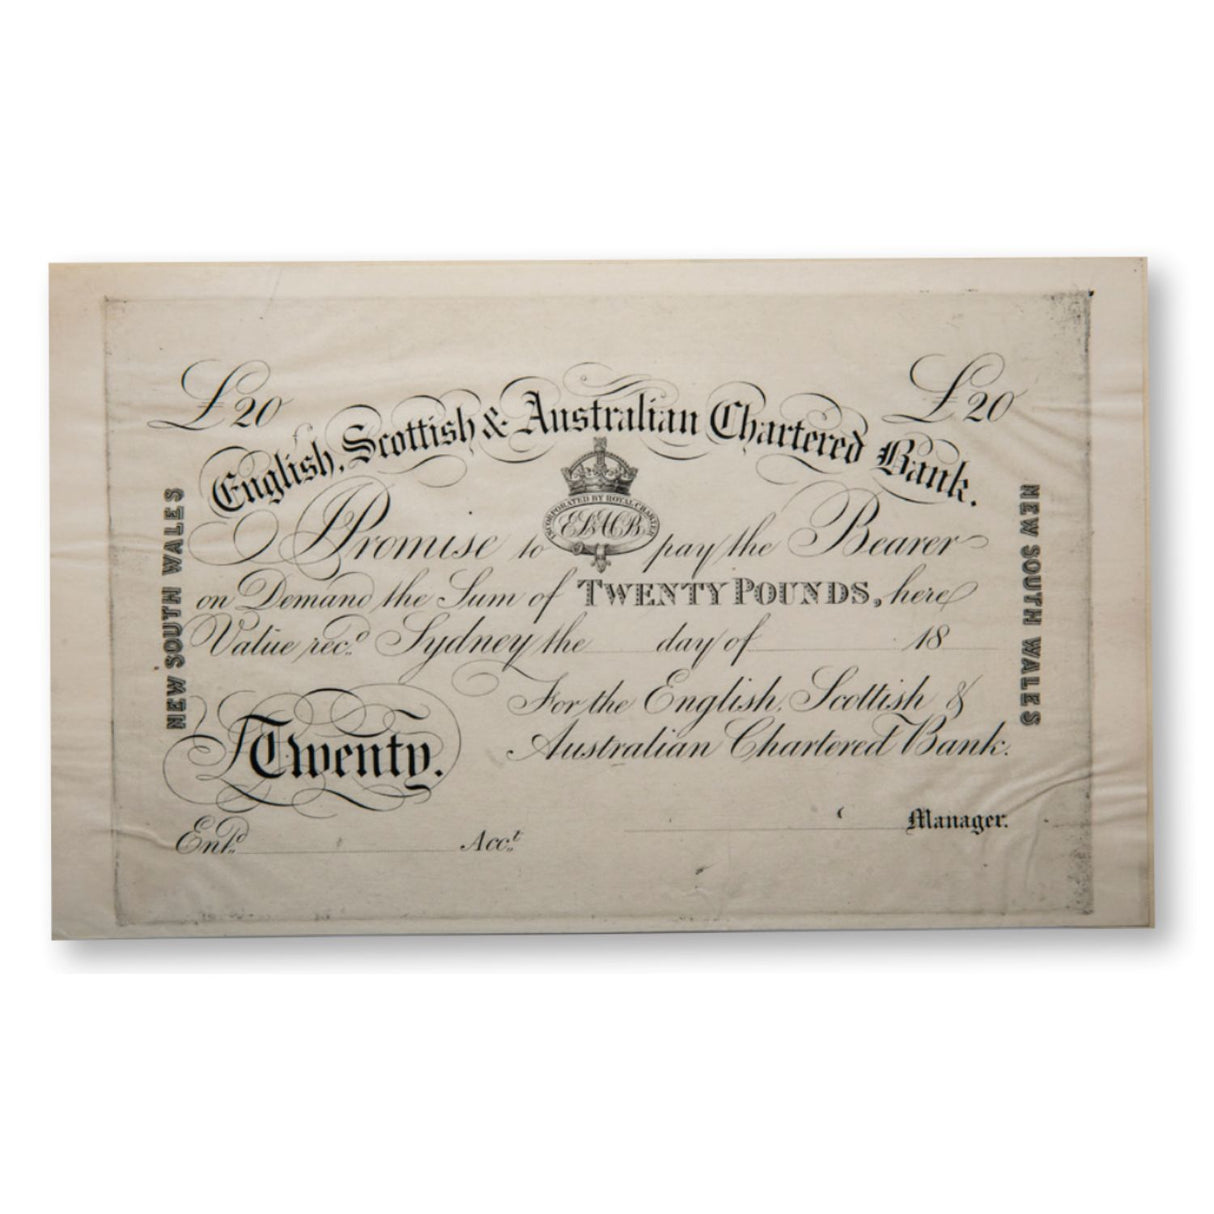 £20
£20
English, Scottish & Australian Chartered Bank.
INCORPORATED BY ROYAL CHARTER
ES&ACB
I Promise to pay the Bearer
on Demand the Sum of TWENTY POUNDS, here
Value rec.d Sydney the day of 18
For the English, Scottish &
Australian Chartered Bank.
Twenty.
Manager.
Ent.d Acc.t
NEW SOUTH WALES
NEW SOUTH WALES